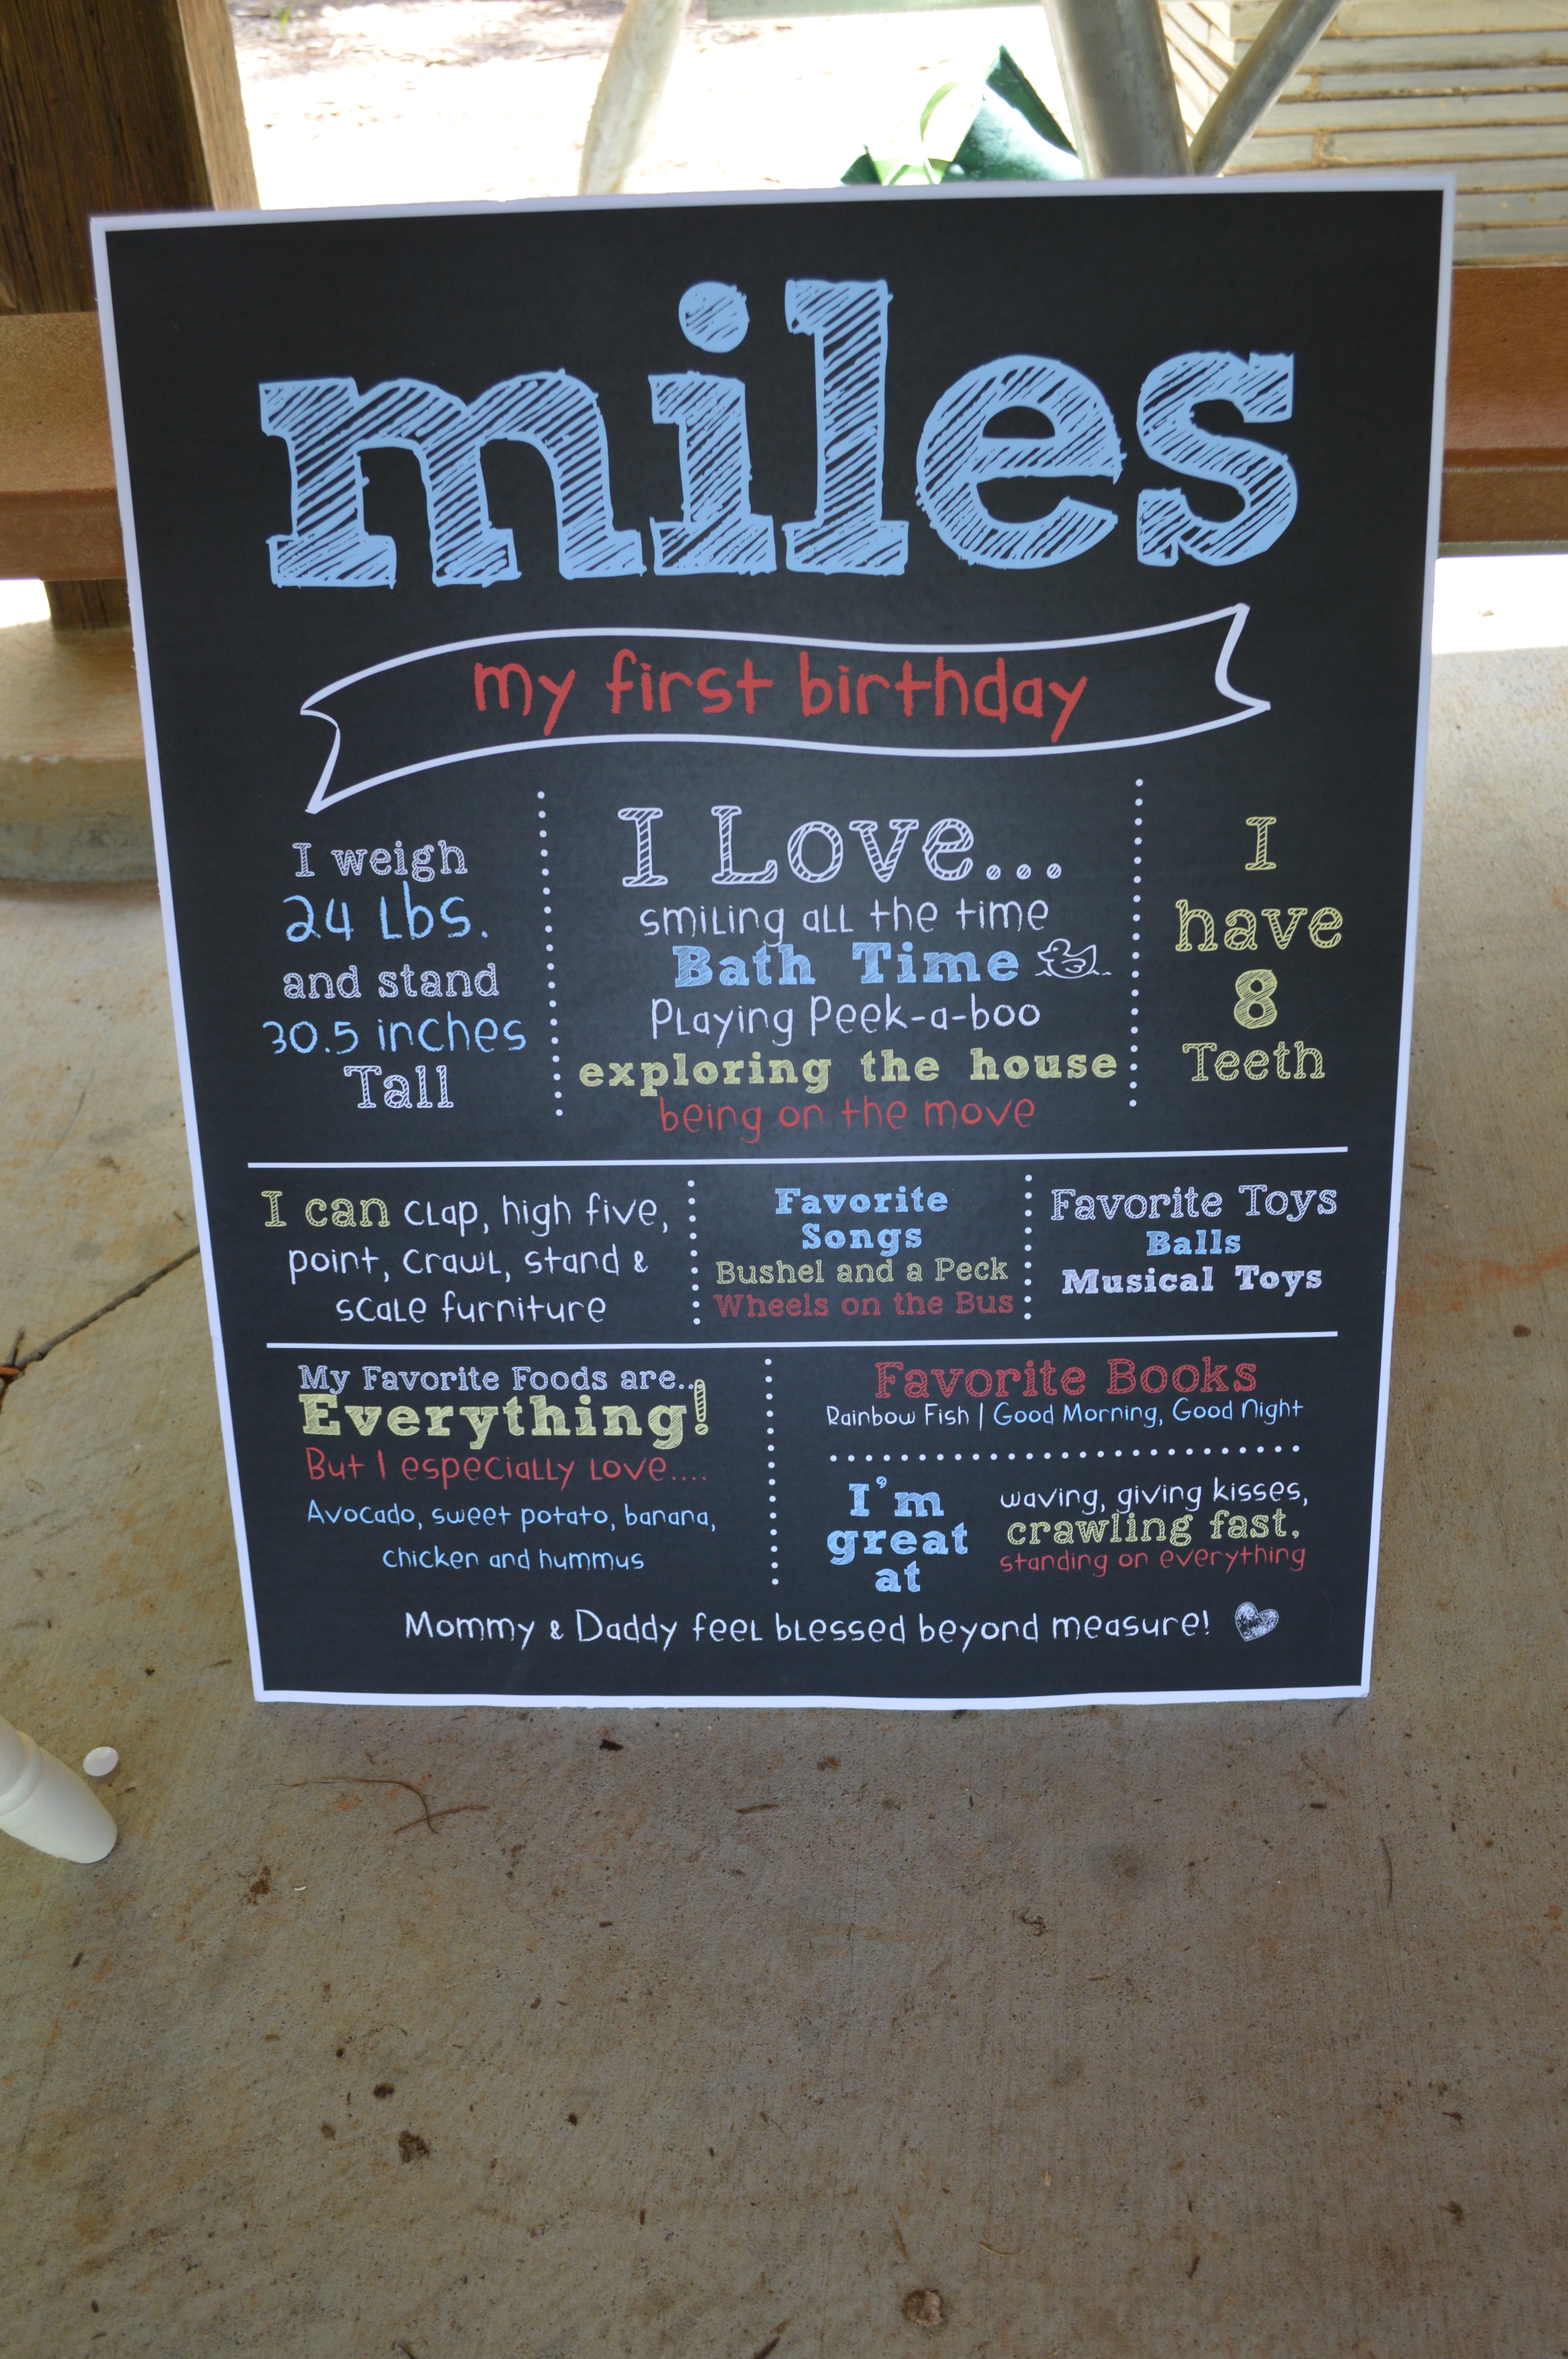 miles
my first birthday
I weigh
24 Lbs.
and stand
30.5 inches
Tall
I Love...
smiling all the time
Bath Time
Playing Peek-a-boo
exploring the house
being on the move
I
have
8
Teeth
I can clap, high five,
point, crawl, stand &
scale furniture
Favorite
Songs
Bushel and a Peck
Wheels on the Bus
Favorite Toys
Balls
Musical Toys
My Favorite Foods are...
Everything!
But I especially love....
Avocado, sweet potato, banana,
chicken and hummus
Favorite Books
Rainbow Fish | Good Morning, Good Night
I'm
great
at
waving, giving kisses,
crawling fast,
standing on everything
Mommy & Daddy feel blessed beyond measure!